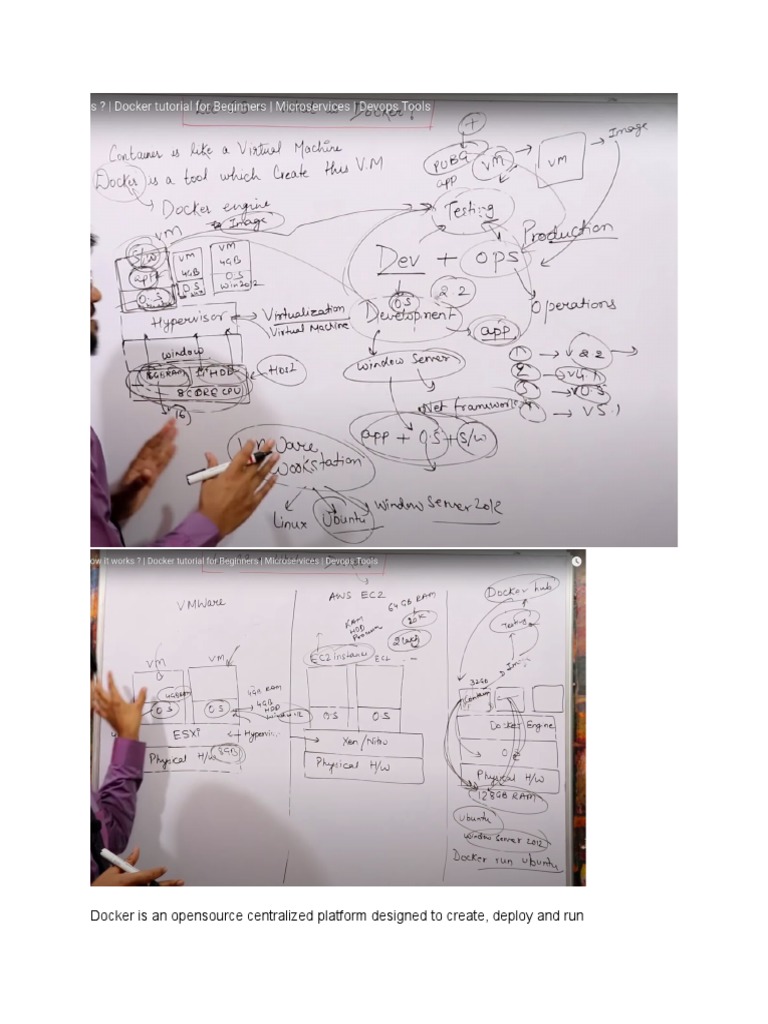 s ? | Docker tutorial for Beginners | Microservices | Devops Tools
Docker?
Container is like a Virtual Machine
Docker is a tool which Create this V.M
Docker engine
Image
VM
S/W
app
O.S
VM
4GB
O.S
VM
4GB
O.S
Win2012
Hypervisor
Virtualization
Virtual Machine
window
8GB RAM
1T HDD
8 CORE CPU
HDCI
16
VMWare
Workstation
Linux
Ubuntu
Window Server 2012
+
PUBG
app
VM
VM
Image
Testing
Production
Dev + OPS
O.S
2.2
Development
Operations
app
Window Server
.Net framework
app + O.S + S/W
V 2.2
V 5.1
ow it works ? | Docker tutorial for Beginners | Microservices | Devops Tools
VMWare
VM
VM
4GB RAM
O.S
O.S
4GB RAM
4GB
HDD
Window12
ESXi
Hypervisor
Physical H/W
8GB
AWS EC2
RAM
HDD
Processor
64 GB RAM
20K
EC2 instance
EC2
O.S
O.S
Xen/Nitro
Physical H/W
Docker hub
Testing
Image
32GB
Contain
Docker Engine
O.S
Physical H/W
128GB RAM
Ubuntu
Window Server 2012
Docker run ubuntu
Docker is an opensource centralized platform designed to create, deploy and run